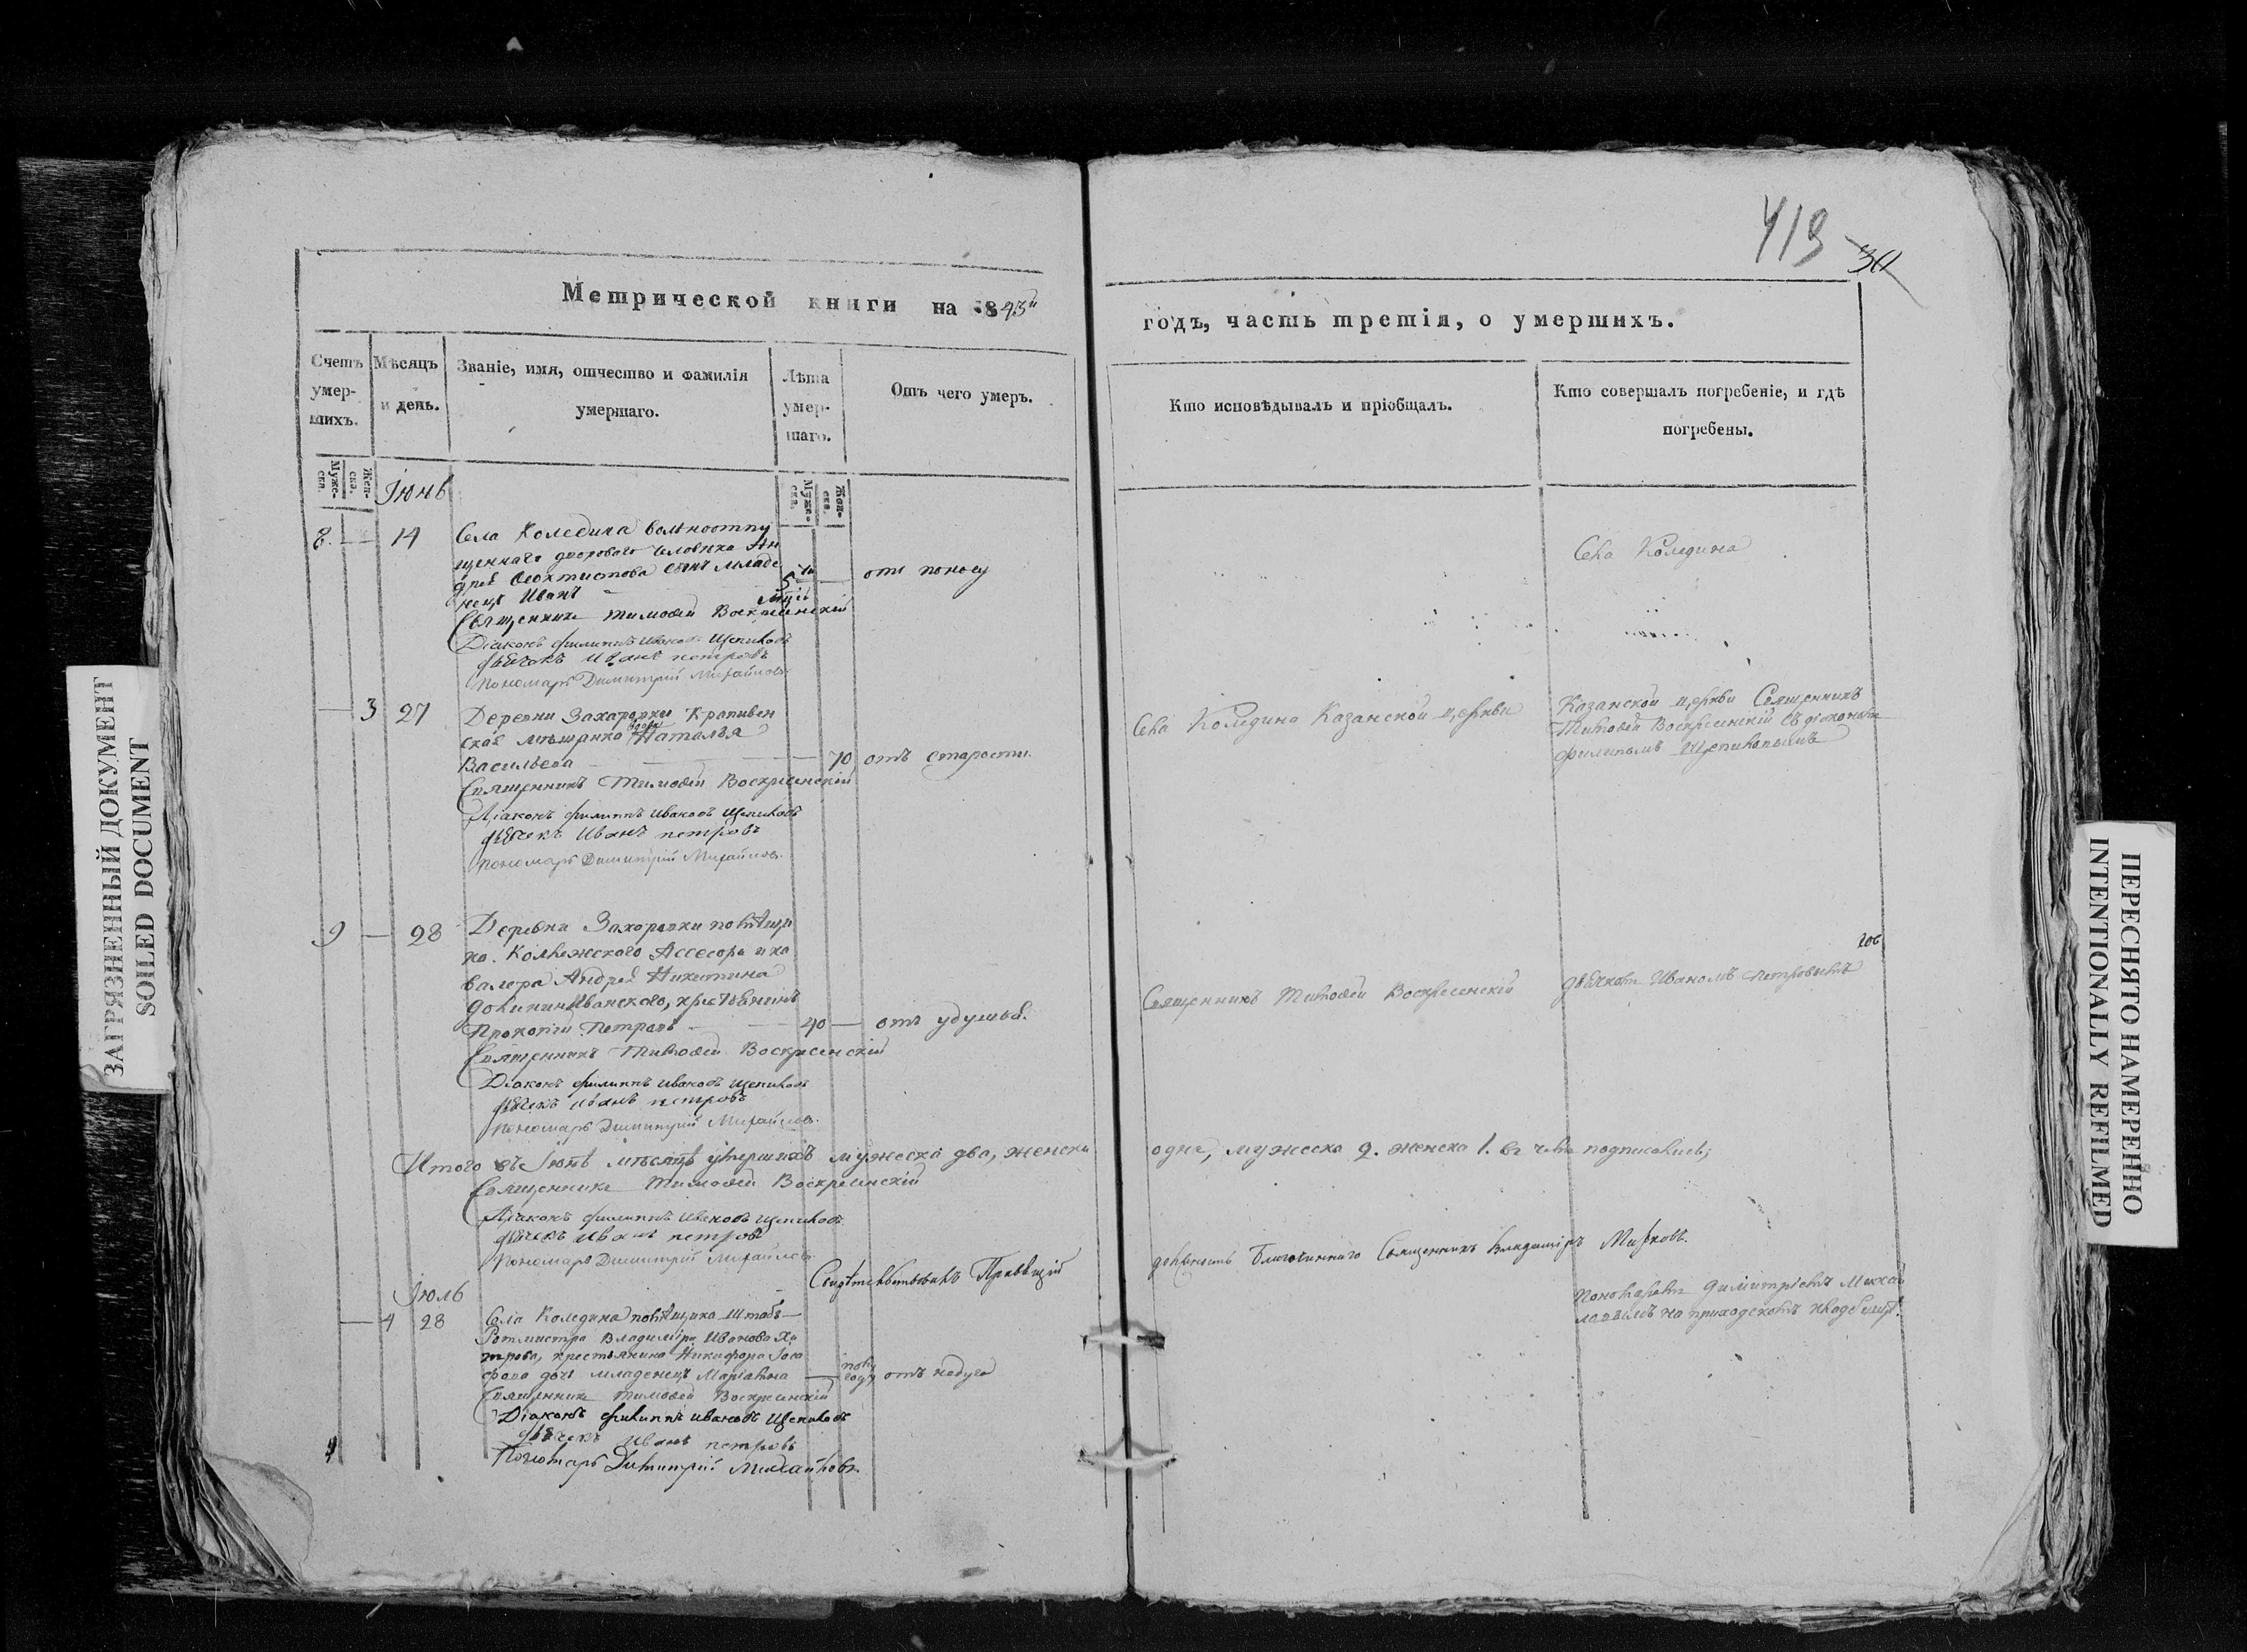 419
30
Метрической книги на 1843й
годъ, часть третія, о умершихъ.
Счетъ умер-шихъ.
Мѣсяцъ и день.
Званіе, имя, отчество и фамилія умершаго.
Лѣта умер-шаго.
Отъ чего умеръ.
Кто исповѣдывалъ и пріобщалъ.
Кто совершалъ погребеніе, и гдѣ погребены.
Муже-ска.
Жен-ска.
Муже-ска.
Жен-ска.
Іюнь
8. — 14 Села Коледина вольноотпу
щеннаго двороваго человѣка Ан
дрея Феоктистова сынъ младе
нецъ Иванъ — 5 — отъ поносу
Священникъ Тимофей Воскресенскій
Діаконъ Филиппъ Ивановъ Щепиловъ
дьячекъ Иванъ Петровъ
Пономарь Димитрій Михайловъ
Села Коледина
— 3 27 Деревни Захаровки Крапивен
ская мѣщанка вдова Наталья
Васильева — 70 отъ старости.
Священникъ Тимофей Воскресенскій
Діаконъ Филиппъ Ивановъ Щепиловъ
дьячекъ Иванъ Петровъ
Пономарь Димитрій Михайловъ.
Села Коледина Казанской церкви
Казанской церкви Священникъ
Тимофей Воскресенскій съ діакономъ
Филипомъ Щепиловымъ
9 — 28 Деревни Захаровки помѣщи
ка Коллежскаго Ассесора и ка
валера Андрея Никитина
крестьянинъ
Прокопій Петровъ — 40 — отъ удушья.
Священникъ Тимофей Воскресенскій
Діаконъ Филиппъ Ивановъ Щепиловъ
дьячекъ Иванъ Петровъ
Пономарь Димитрій Михайловъ.
Священникъ Тимофей Воскресенскій
дьячкомъ Иваномъ Петровымъ
Итого въ Іюнѣ мѣсяцѣ умершихъ мужеска два, женска
одна, мужеска 2. женска 1. въ чемъ подписались;
Священникъ Тимофей Воскресенскій
Діаконъ Филиппъ Ивановъ Щепиловъ
дьячекъ Иванъ Петровъ
Пономарь Димитрій Михайловъ
Свидѣтельствовалъ Правящій
должность Благочиннаго Священникъ Владиміръ Марковъ.
Іюль
— 4 28 Села Коледина помѣщика Штабъ—
Ротмистра Владиміра Иванова
крестьянина Никифора
дочь младенецъ — полу году отъ недуга
Священникъ Тимофей Воскресенскій
Діаконъ Филиппъ Ивановъ Щепиловъ
дьячекъ Иванъ Петровъ
Пономарь Димитрій Михайловъ.
Пономаремъ Димитріемъ Михай
ловымъ на приходскомъ кладбищѣ.
ЗАГРЯЗНЕННЫЙ ДОКУМЕНТ
SOILED DOCUMENT
ПЕРЕСНЯТО НАМЕРЕННО
INTENTIONALLY REFILMED